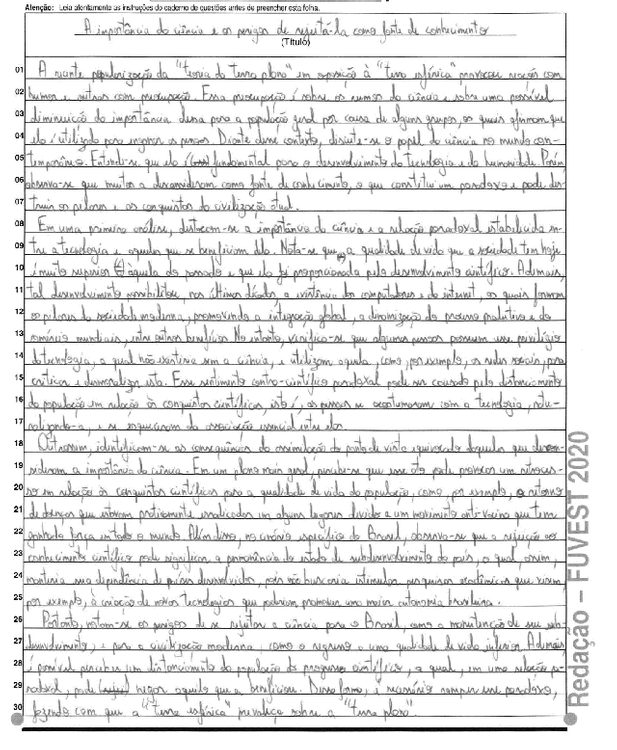 Atenção: Leia atentamente as instruções do caderno de questões antes de preencher esta folha.
A importância da ciência e os perigos de rejeitá-la como fonte de conhecimento
(Título)
01 A recente popularização da "teoria da terra plana" em oposição à "terra esférica" provocou reações com
02 humor e outras com preocupação. Essa preocupação é sobre os rumos da ciência e sobre uma possível
03 diminuição da importância dessa para a população geral por causa de alguns grupos, os quais afirmam que
04 ela é utilizada para enganar as pessoas. Diante desse contexto, discute-se o papel da ciência no mundo con-
05 temporâneo. Entende-se que ela é fundamental para o desenvolvimento da tecnologia e da humanidade. Porém
06 observa-se que muitos a desconsideram como fonte de conhecimento, o que constitui um paradoxo e pode des-
07 truir os pilares e as conquistas da civilização atual.
08 Em uma primeira análise, destacam-se a importância da ciência e a relação paradoxal estabelecida en-
09 tre a tecnologia e aqueles que se beneficiam dela. Nota-se que a qualidade de vida que a sociedade tem hoje
10 é muito superior àquela do passado e que ela foi proporcionada pelo desenvolvimento científico. Ademais,
11 tal desenvolvimento possibilitou, nas últimas décadas, a existência dos computadores e da internet, os quais formam
12 os pilares da sociedade moderna, promovendo a integração global, a dinamização do processo produtivo e do
13 comércio mundiais, entre outros benefícios. No entanto, verifica-se que algumas pessoas possuem esse privilégio
14 da tecnologia, a qual não existiria sem a ciência, e utilizam aquela, como, por exemplo, as redes sociais, para
15 criticar e desmoralizar esta. Esse sentimento contra-científico paradoxal pode ser causado pelo distanciamento
16 da população em relação às conquistas científicas, isto é, as pessoas se acostumaram com a tecnologia, natu-
17 ralizando-a, e se esqueceram da associação essencial entre elas.
18 Outrossim, identificam-se as consequências da assimilação do ponto de vista equivocado daqueles que descon-
19 sideram a importância da ciência. Em um plano mais geral, percebe-se que esse ato pode provocar um retroces-
20 so em relação às conquistas científicas para a qualidade de vida da população, como, por exemplo, o retorno
21 de doenças que estavam praticamente erradicadas em alguns lugares devido a um movimento anti-vacina que tem
22 ganhado força em todo o mundo. Além disso, no cenário específico do Brasil, observa-se que a rejeição ao
23 conhecimento científico pode significar a permanência do estado de subdesenvolvimento do país, o qual, assim,
24 manteria sua dependência de países desenvolvidos, pois não buscaria estimular pesquisas acadêmicas que visem,
25 por exemplo, à criação de novas tecnologias que poderiam promover uma maior autonomia brasileira.
26 Portanto, notam-se os perigos de se rejeitar a ciência para o Brasil, como a manutenção de seu sub-
27 desenvolvimento, e para a civilização moderna, como o regresso a uma qualidade de vida inferior. Ademais
28 é possível perceber um distanciamento da população do progresso científico, a qual, em uma relação pa-
29 radoxal, pode negar aquilo que a beneficiou. Dessa forma, é necessário romper esse paradoxo,
30 fazendo com que a "terra esférica" prevaleça sobre a "terra plana".
Redação – FUVEST 2020